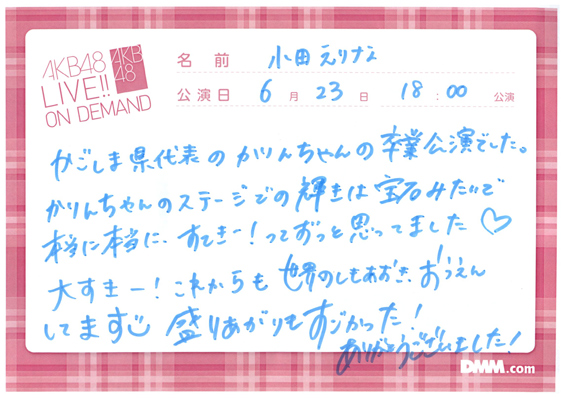 AKB48
LIVE!!
ON DEMAND
AKB
48
名前 小田えりな
公演日 6月23日 18:00 公演
かごしま県代表のかりんちゃんの卒業公演でした。
かりんちゃんのステージでの輝きは宝石みたいで
本当に本当に、すてきー!ってずっと思ってました♡
大すきー!これからも世界のしもあおき、おうえん
してます 盛りあがりもすごかった!
ありがとうございました!
DMM.com